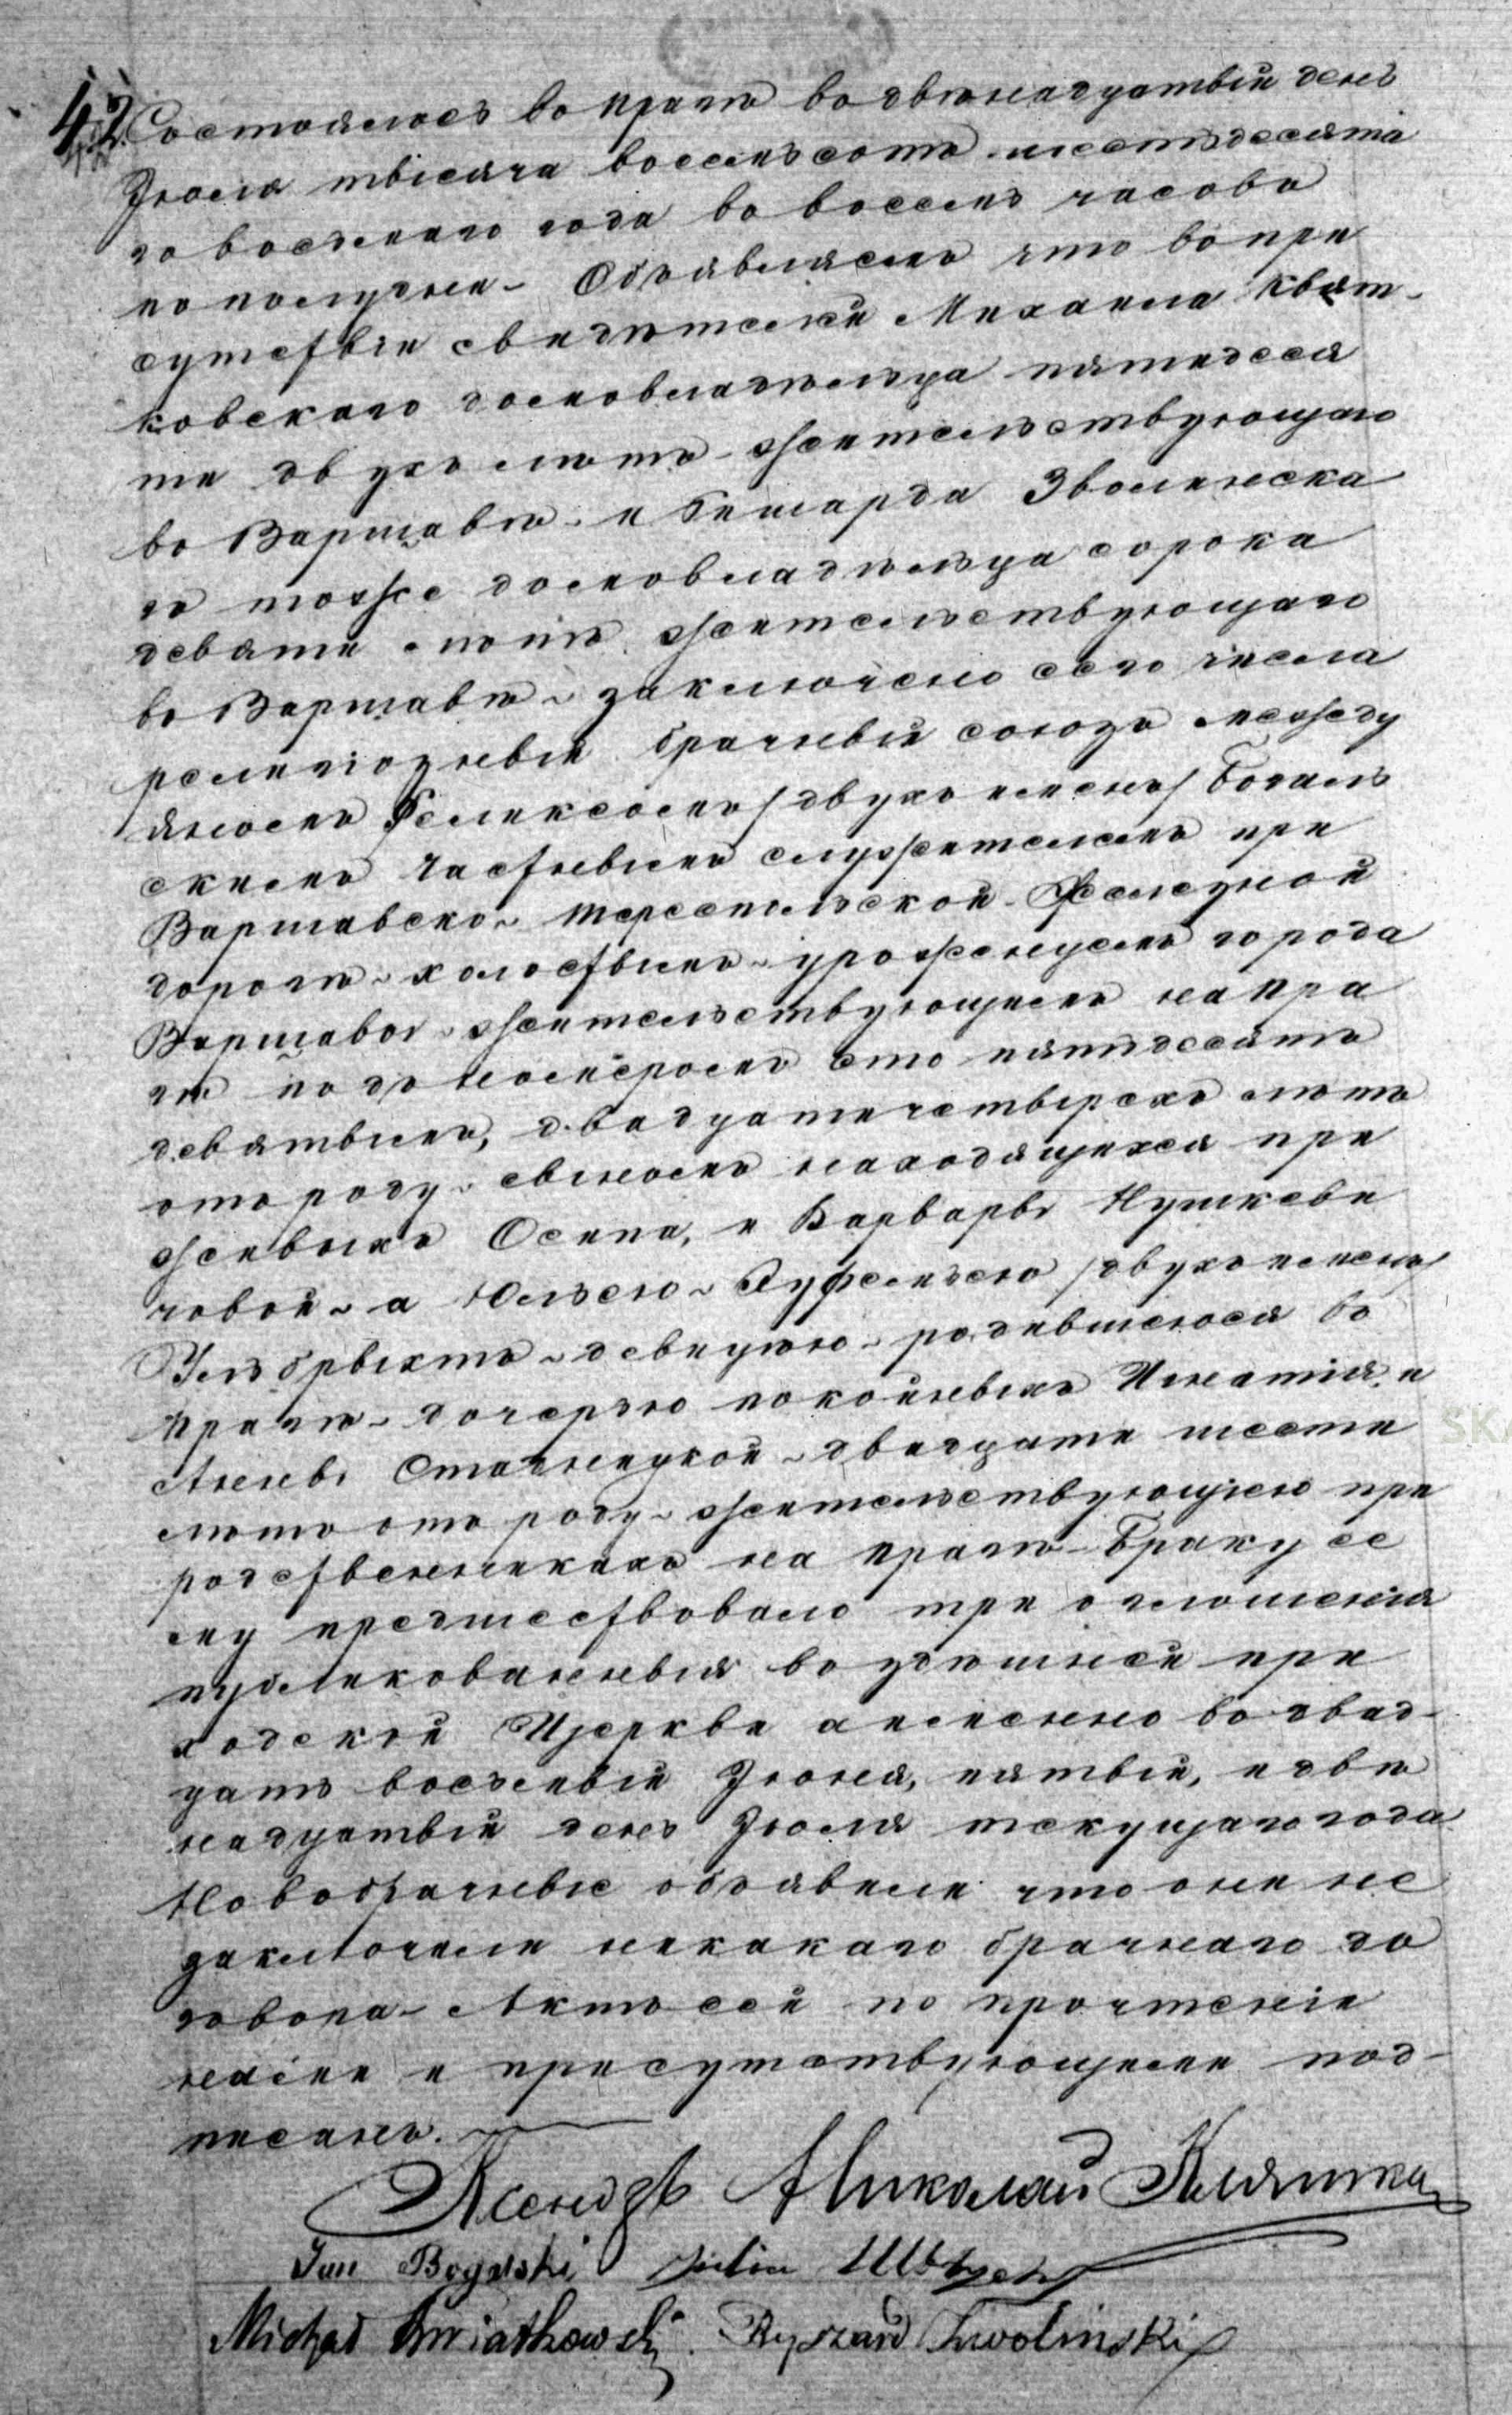 42. Состоялось во Праге во двенадцатый день
Іюля тысяча восемьсотъ шестьдесята
го восьмаго года во восемь часовъ
по полудни – Объявляемъ что во при
сутствіи свидѣтелей Михаила Квят-
ковскаго домовладѣльца пятидеся
ти двухъ лѣтъ – жительствующаго
во Варшавѣ – и Ришарда Зволинска
го тоже домовладѣльца сорока
девяти лѣтъ жительствующаго
во Варшавѣ – заключено сего числа
религіозный брачный союзъ между
Яномъ Феликсомъ /двухъ именъ/ Богаль
скимъ частнымъ служителемъ при
Варшавско – Тереспольской – Железной
дорогѣ – холостымъ – уроженцемъ города
Варшавы – жительствующимъ на Пра
гѣ подъ номеромъ сто пятьдесятъ
девятымъ, двадцати четырехъ лѣтъ
отъ роду – сыномъ находящихся при
живыхъ Осипа, и Варвары Кушкеви
човой – а Юльею – Еуфеміею /двухъ именъ/
Ульбрыхтъ – девицою – родившеюся во
Прагѣ – дочерью покойныхъ Игнатія и
Анны Стагницкой – двадцати шести
лѣтъ отъ роду – жительствующею при
родственникахъ на Прагѣ – Браку се
му предшествовало три оглошенія
публикованныя во здѣшней при
ходской Церкви а именно во двад-
цать восьмый Іюня, пятый, и двѣ
надцатый день Іюля текущаго года
Новобрачные объявили что они не
заключили никакаго брачнаго до
говора – Актъ сей по прочтеніи
нами и присутствующими под-
писанъ.
Ксендзъ Николай Кляшка
Jan Bogalski Julia Ulbrycht
Michał Kwiatkowski. Ryszard Zwolinski